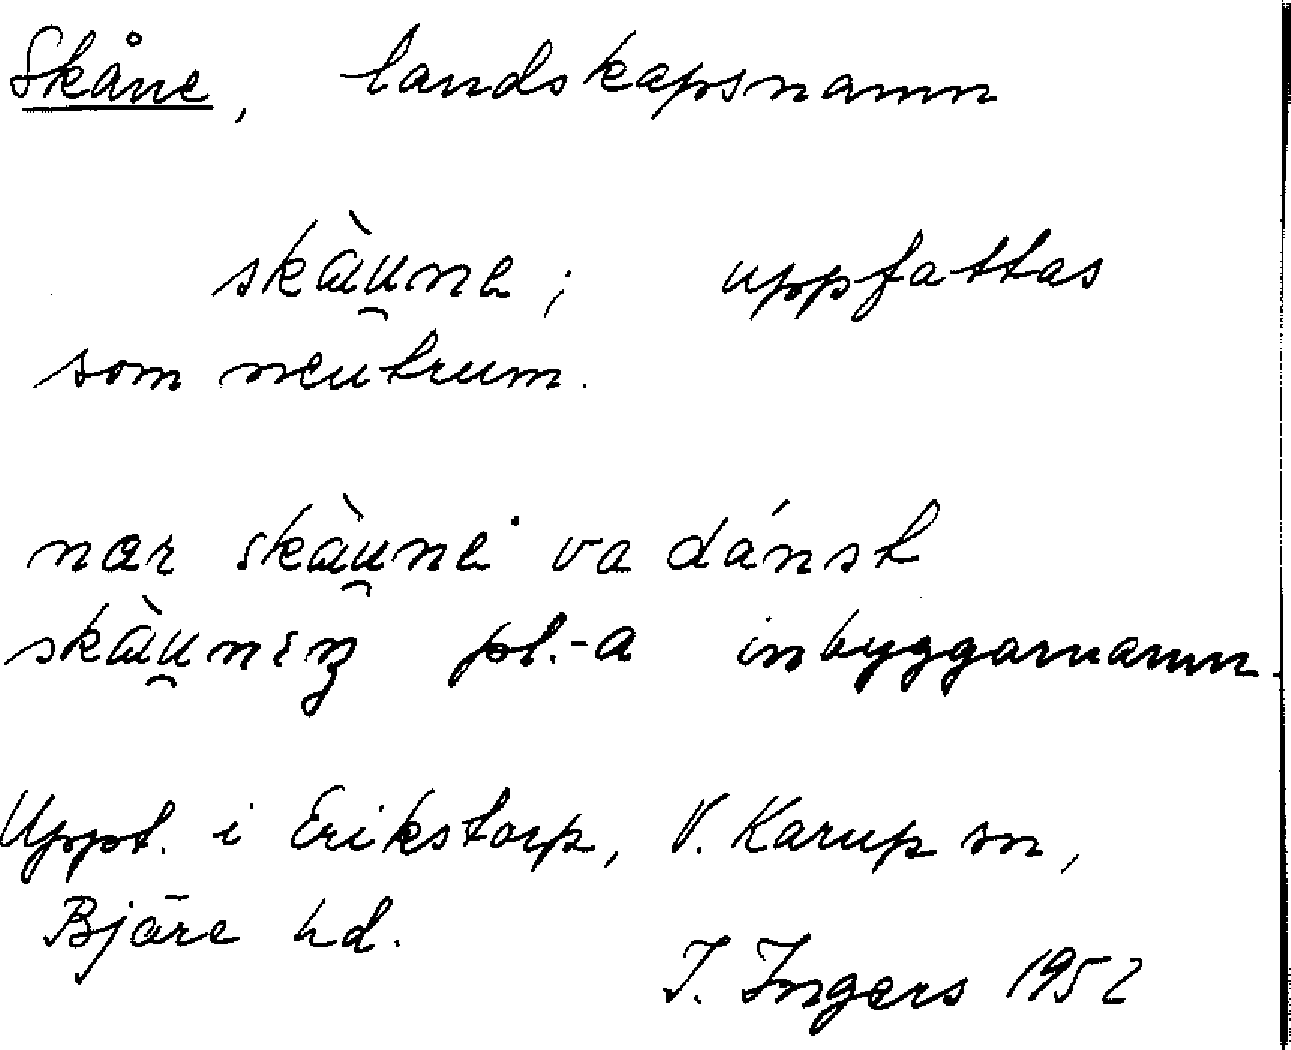 Skåne, landskapsnamn
skæ̀u̯ne; uppfattas
som neutrum.
nær skæ̀u̯ne va dánsk
skæ̀u̯nɪŋ pl.-a inbyggarnamn.
Uppt. i Erikstorp, V. Karup sn,
Bjäre hd.
I. Ingers 1952